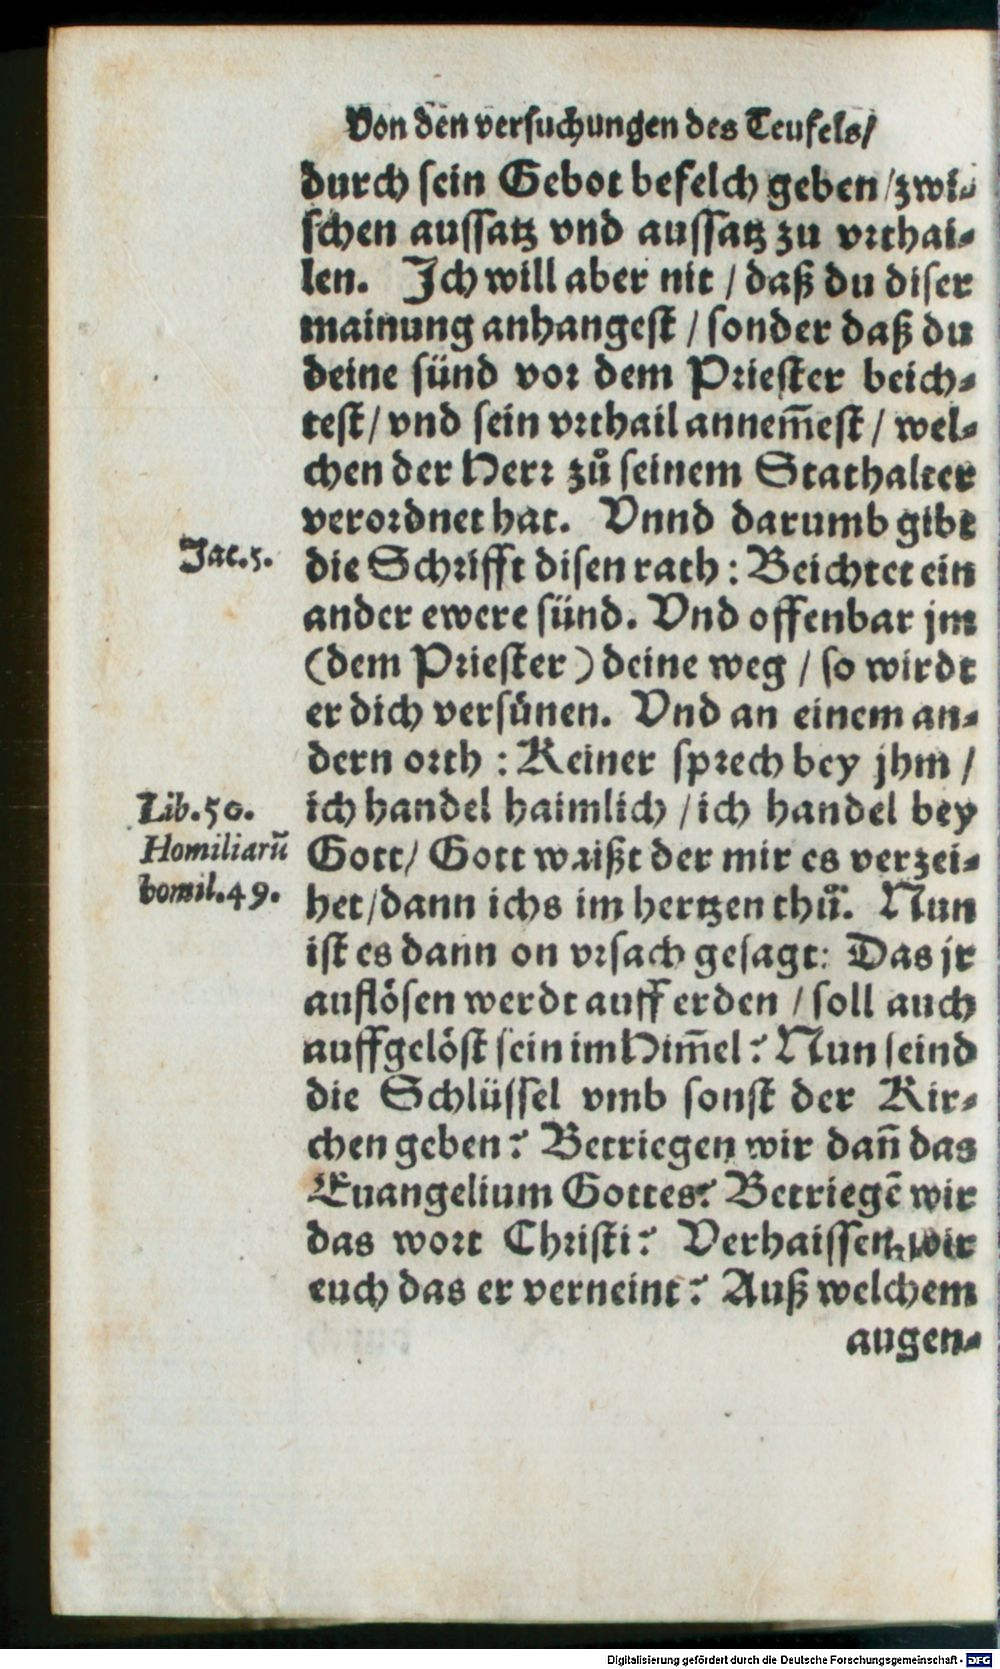 Von den versuchungen des Teufels/
durch sein Gebot befelch geben/zwi-
schen aussatz vnd aussatz zu vrthai-
len. Ich will aber nit / daß du diser
mainung anhangest / sonder daß du
deine sünd vor dem Priester beich-
test/ vnd sein vrthail annem̄est / wel-
chen der Herr zů seinem Stathalter
verordnet hat. Vnnd darumb gibt
Jac.5.
die Schrifft disen rath : Beichtet ein
ander ewere sünd. Vnd offenbar jm
(dem Priester) deine weg / so wirdt
er dich versünen. Vnd an einem an-
dern orth : Keiner sprech bey jhm /
Lib.50.
Homiliarū
homil.49.
ich handel haimlich / ich handel bey
Gott/ Gott waißt der mir es verzei-
het/dann ichs im hertzen thů. Nun
ist es dann on vrsach gesagt: Das jr
auflösen werdt auff erden / soll auch
auffgelöst sein im Him̄el? Nun seind
die Schlüssel vmb sonst der Kir-
chen geben? Betriegen wir dañ das
Euangelium Gottes? Betriegē wir
das wort Christi? Verhaissen wir
euch das er verneint? Auß welchem
augen-
Digitalisierung gefördert durch die Deutsche Forschungsgemeinschaft - DFG